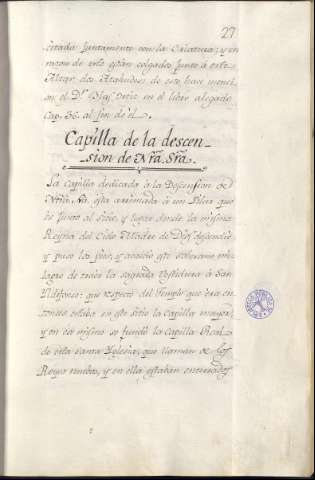 27
citada juntamente con la Criatura; y en
razon de esto están colgados junto á este
Altar dos Atahudes, de esto hace menci-
on el Dr. Blas Ortiz en el libro alegado
Cap. 36. al fin de él.
Capilla de la descen-
sion de Nrã. Srã.
La Capilla dedicada á la Descension de
Ntrã. Srã. está arrimada á un Pilar que
es junto al sitio, y lugar donde la misma
Reyna del Cielo Madre de Dios descendió
y puso los pies, y acaeció este soberano mi-
lagro de traer la sagrada Vestidura á San
Ildefonso: que respecto del Templo que era en-
tonces estaba en este sitio la Capilla mayor;
y en este mismo se fundó la Capilla Real
de esta Santa Iglesia, que llaman de los
Reyes nuebos, y en ella estaban enterrados